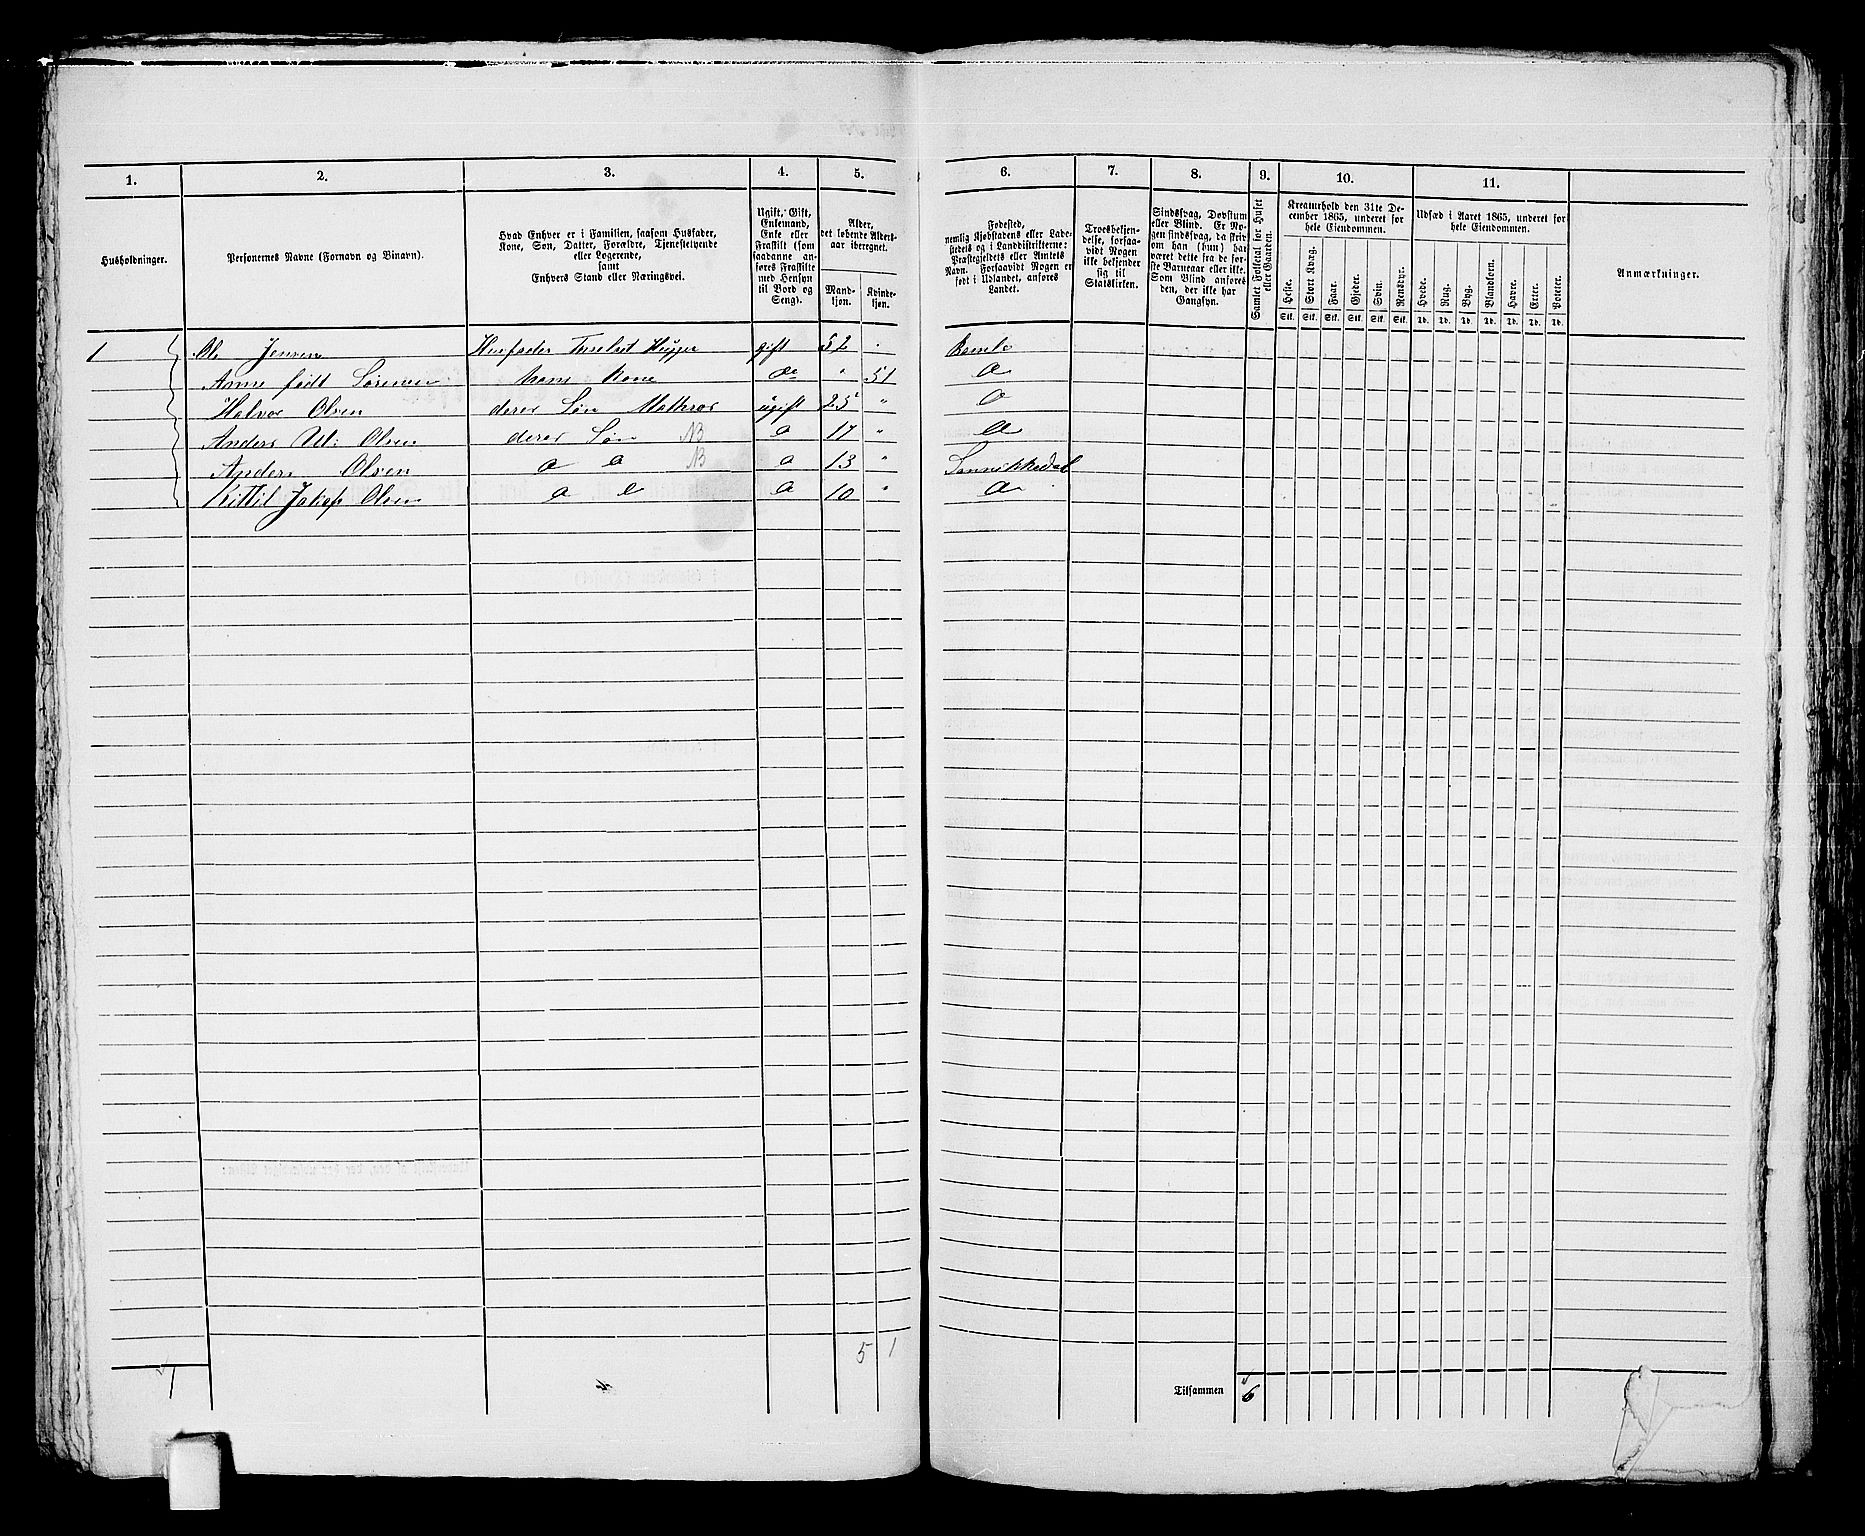 1.
2.
3.
4.
5.
6.
7.
8.
9.
10.
11.
Husholdninger.
Personernes Navne (Fornavn og Binavn).
Hvad Enhver er i Familien, saasom Husfader,
Kone, Søn, Datter, Forældre, Tjenestetyende
eller Logerende,
samt
Enhvers Stand eller Næringsvei.
Ugift, Gift,
Enkemand,
Enke eller
Fraskilt (som
saadanne an-
føres Fraskilte
med Hensyn
til Bord og
Seng).
Alder,
det løbende Alders-
aar iberegnet.
Mand-
kjøn.
Kvinde-
kjøn.
Fødested,
nemlig Kjøbstadens eller Lade-
stedets og i Landdistrikterne:
Præstegjeldets eller Amtets
Navn. Forsaavidt Nogen er
født i Udlandet, anføres
Landet.
Troesbekjen-
delse, forsaa-
vidt Nogen
ikke bekjender
sig til
Statskirken.
Sindssvag, Døvstum
eller Blind. Er No-
gen sindssvag, da skriv
om han (hun) har
været dette fra de før-
ste Barneaar eller ikke.
Som Blind anføres
den, der ikke har
Gangsyn.
Samlet Folketal for Huset
eller Gaarden.
Kreaturhold den 31te De-
cember 1865, underet for
hele Eiendommen.
Heste. Stort Kvæg. Faar. Gjeder. Svin. Rensdyr.
Stk. Stk. Stk. Stk. Stk. Stk.
Udsæd i Aaret 1865, underet for
hele Eiendommen.
Hvede. Rug. Byg. Blandkorn. Havre. Erter. Poteter.
Td. Td. Td. Td. Td. Td. Td.
Anmærkninger.
1 Ole Jensen Husfader gift 52 " Bamle
Anne født Sørensen hans Kone do " 51 do
Halvor Olsen deres Søn Mathros ugift 25 " do
Anders Olsen deres Søn NB do 17 " do
Anders Olsen do do NB do 13 " Sannikkedal
Kittil Jakop Olsen do do do 10 " do
5 1
1
Tilsammen 6